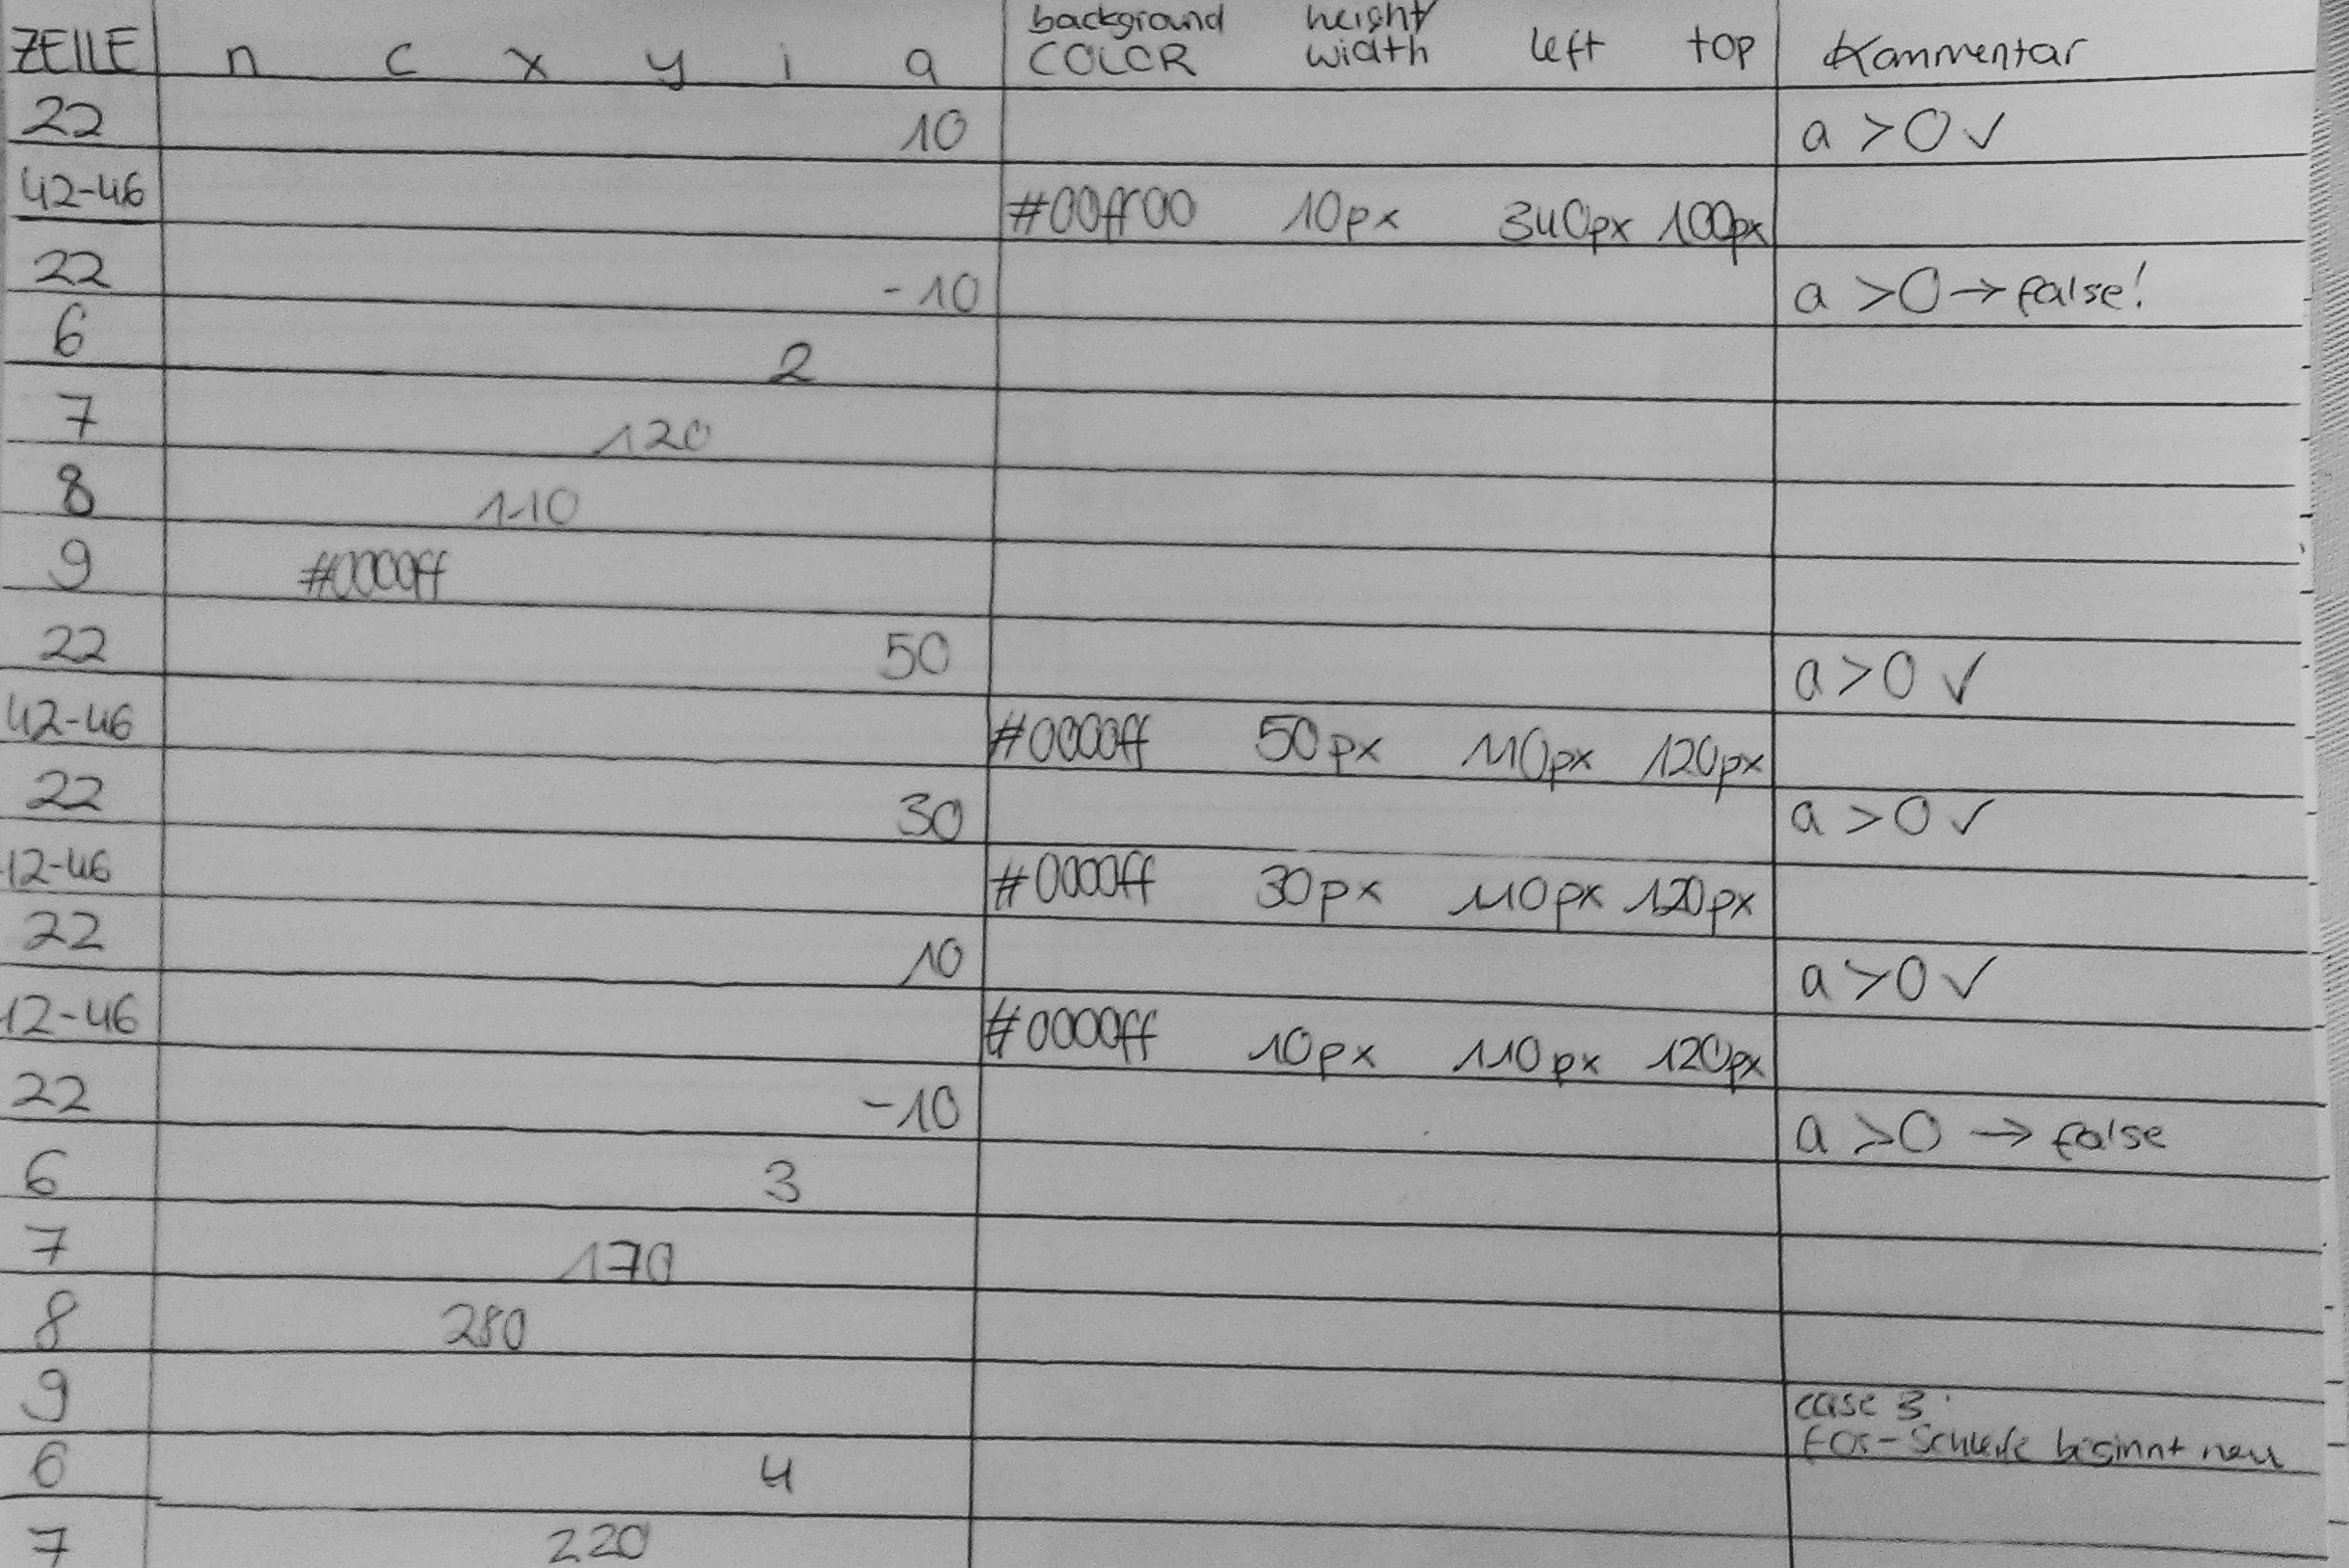 ZEILE n c x y i a background COLOR height width left top Kommentar
22 10 a > 0 ✓
42-46 #00ff00 10px 340px 100px
22 -10 a > 0 → false!
6 2
7 120
8 110
9 #0000ff
22 50 a > 0 ✓
42-46 #0000ff 50px 110px 120px
22 30 a > 0 ✓
12-46 #0000ff 30px 110px 120px
22 10 a > 0 ✓
12-46 #0000ff 10px 110px 120px
22 -10 a > 0 → false
6 3
7 170
8 280
9 case 3
for-Schleife beginnt neu
6 4
7 220